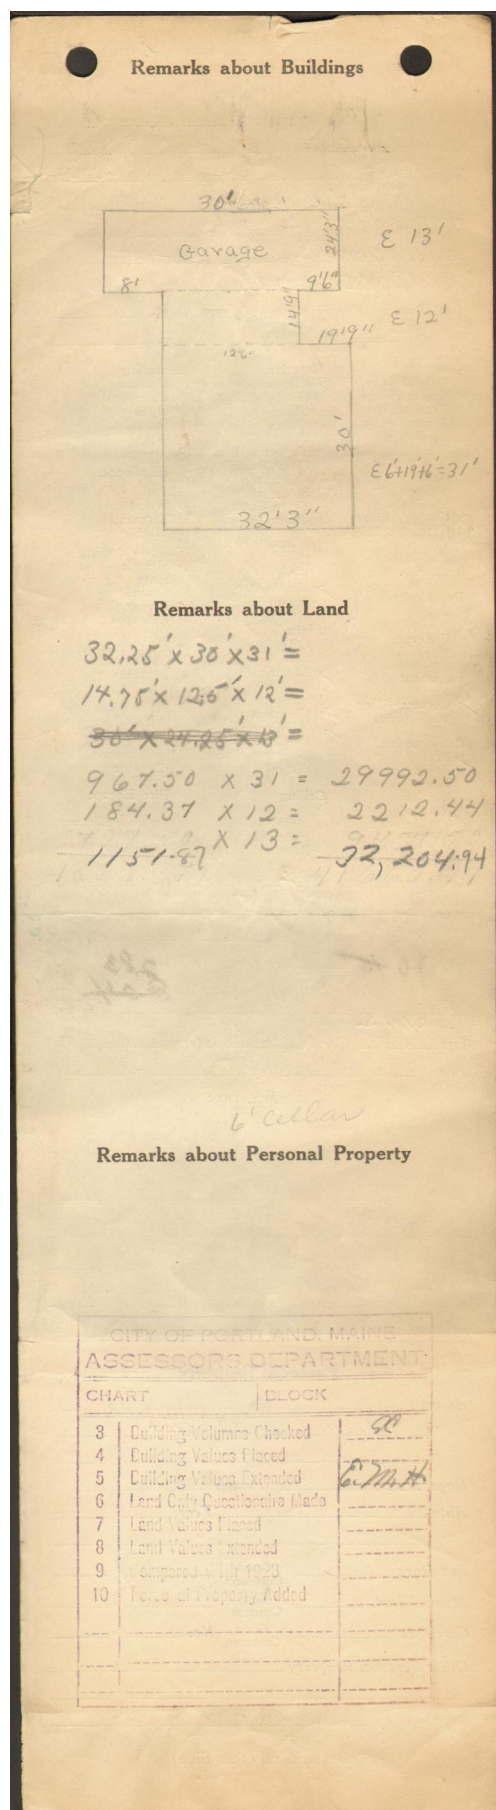 Remarks about Buildings
30'
Garage
24'3"
E 13'
8'
9'6"
14'9"
E 12'
19'9"
12½'
30'
E 6'+19'+6'=31'
32'3"
Remarks about Land
32.25' x 30' x 31' =
14.75' x 12.5' x 12' =
30' x 24.25' x 13' =
967.50 x 31 = 29992.50
184.37 x 12 = 2212.44
x 13 =
1151.87 32,204.94
6' cellar
Remarks about Personal Property
CITY OF PORTLAND, MAINE
ASSESSORS DEPARTMENT
CHART BLOCK
3 Building Volumes Checked
4 Building Values Placed
5 Building Values Extended E.M.H.
6 Land Only Questionaire Made
7 Land Values Placed
8 Land Values Extended
9 Compared With 1923
10 Personal Property Added